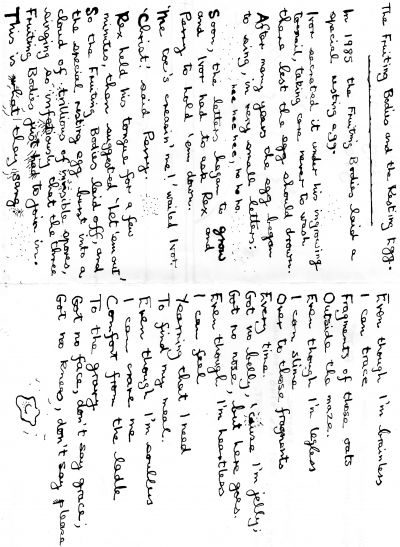 The Fruiting Bodies and the Resting Egg.
In 1985 the Fruiting Bodies laid a
special resting egg.
Ivor secreted it under his ingrowing
toenail, taking care never to wash
there lest the egg should drown.
After many years the egg began
to sing, in very small letters.
nee nee nee, no no no.
Soon, the letters began to grow
and Ivor had to ask Rex and
Perry to hold 'em down.
'Me toe's creasin' me! wailed Ivor.
'Christ' said Perry.
Rex held his tongue for a few
minutes, then suggested 'let 'em out',
So the Fruiting Bodies laid off, and
the special resting egg burst into a
cloud of trillions of invisible spores,
singing so infectiously that the three
Fruiting Bodies just had to join in.
This is what they sang:
Even though I'm brainless
I can trace
Fragments of those oats
Outside the maze.
Even though I'm legless
I can slime
Over to those fragments
Every time.
Got no belly, 'cause I'm jelly;
Got no nose, but here goes.
Even though I'm heartless
I can feel
Yearning that I need
To find my meal.
Even though I'm soulless
I can crave me
Comfort from the ladle
To the gravy
Got no face, don't say grace;
Got no knees, don't say please